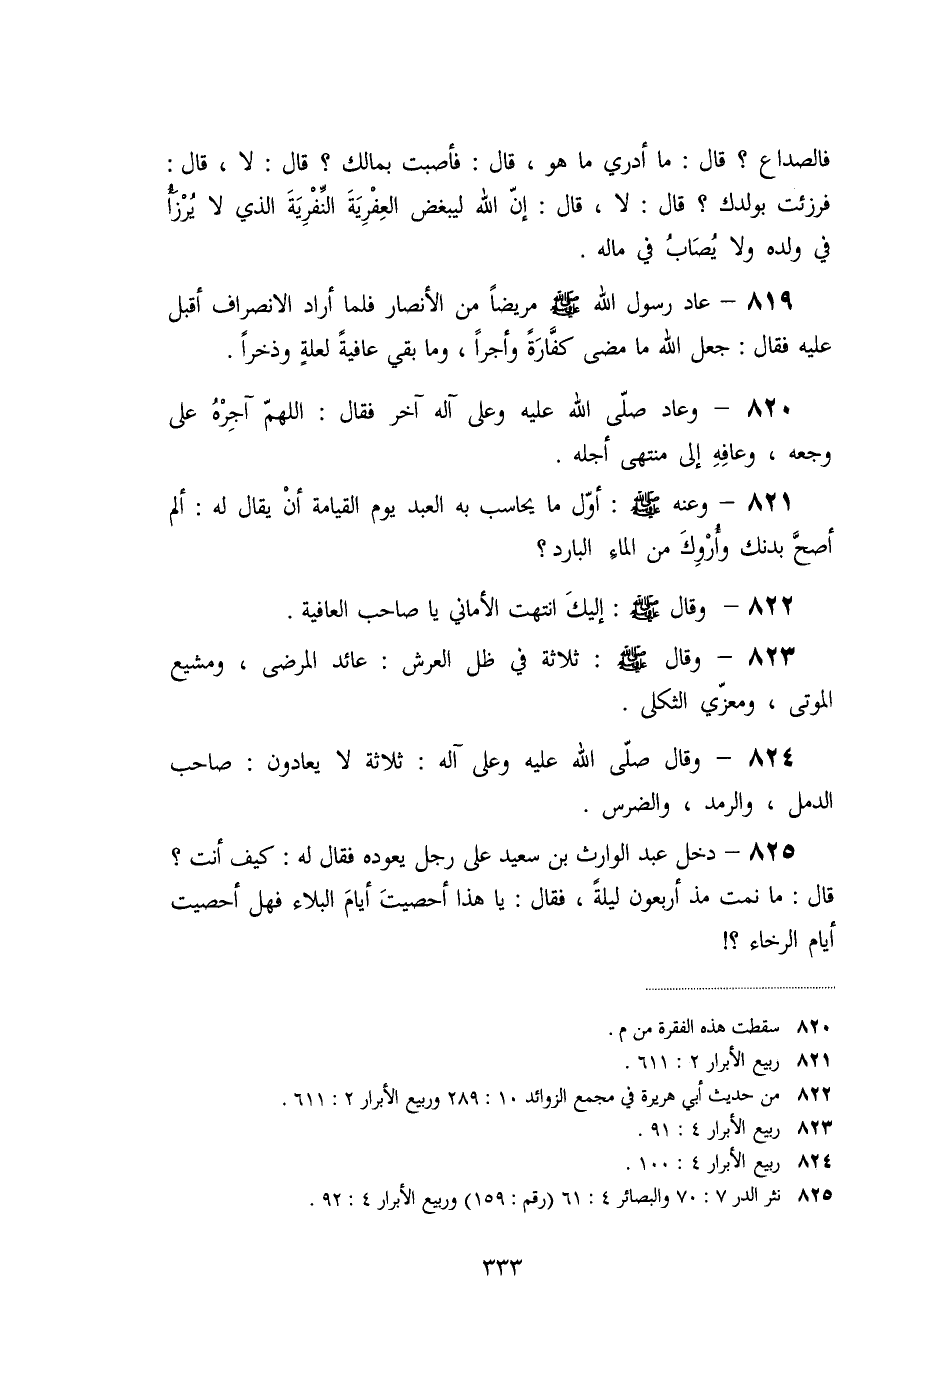 فالصداع ؟ قال : ما أدري ما هو ، قال : فأصبت بمالك ؟ قال : لا ، قال :
فرزئت بولدك ؟ قال : لا ، قال : إنّ الله ليبغض العِفْرِيَةَ النِّفْرِيَةَ الذي لا يُرْزَأُ
في ولده ولا يُصَابُ في ماله .
٨١٩ – عاد رسول الله ﷺ مريضاً من الأنصار فلما أراد الانصراف أقبل
عليه فقال : جعل الله ما مضى كفَّارَةً وأجراً ، وما بقي عافيةً لعلةٍ وذخراً .
٨٢٠ – وعاد صلّى الله عليه وعلى آله آخر فقال : اللهمّ آجِرْهُ على
وجعه ، وعافِهِ إلى منتهى أجله .
٨٢١ – وعنه ﷺ : أوّل ما يحاسب به العبد يوم القيامة أنْ يقال له : ألم
أصحَّ بدنك وأُرْوِكَ من الماءِ البارد ؟
٨٢٢ – وقال ﷺ : إليكَ انتهت الأماني يا صاحب العافية .
٨٢٣ – وقال ﷺ : ثلاثة في ظل العرش : عائد المرضى ، ومشيع
الموتى ، ومعزّي الثكلى .
٨٢٤ – وقال صلّى الله عليه وعلى آله : ثلاثة لا يعادون : صاحب
الدمل ، والرمد ، والضرس .
٨٢٥ – دخل عبد الوارث بن سعيد على رجل يعوده فقال له : كيف أنت ؟
قال : ما نمت مذ أربعون ليلةً ، فقال : يا هذا أحصيتَ أيامَ البلاء فهل أحصيت
أيام الرخاء ؟!
٨٢٠ سقطت هذه الفقرة من م .
٨٢١ ربيع الأبرار ٢ : ٦١١ .
٨٢٢ من حديث أبي هريرة في مجمع الزوائد ١٠ : ٢٨٩ وربيع الأبرار ٢ : ٦١١ .
٨٢٣ ربيع الأبرار ٤ : ٩١ .
٨٢٤ ربيع الأبرار ٤ : ١٠٠ .
٨٢٥ نثر الدر ٧ : ٧٠ والبصائر ٤ : ٦١ (رقم : ١٥٩) وربيع الأبرار ٤ : ٩٢ .
٣٣٣